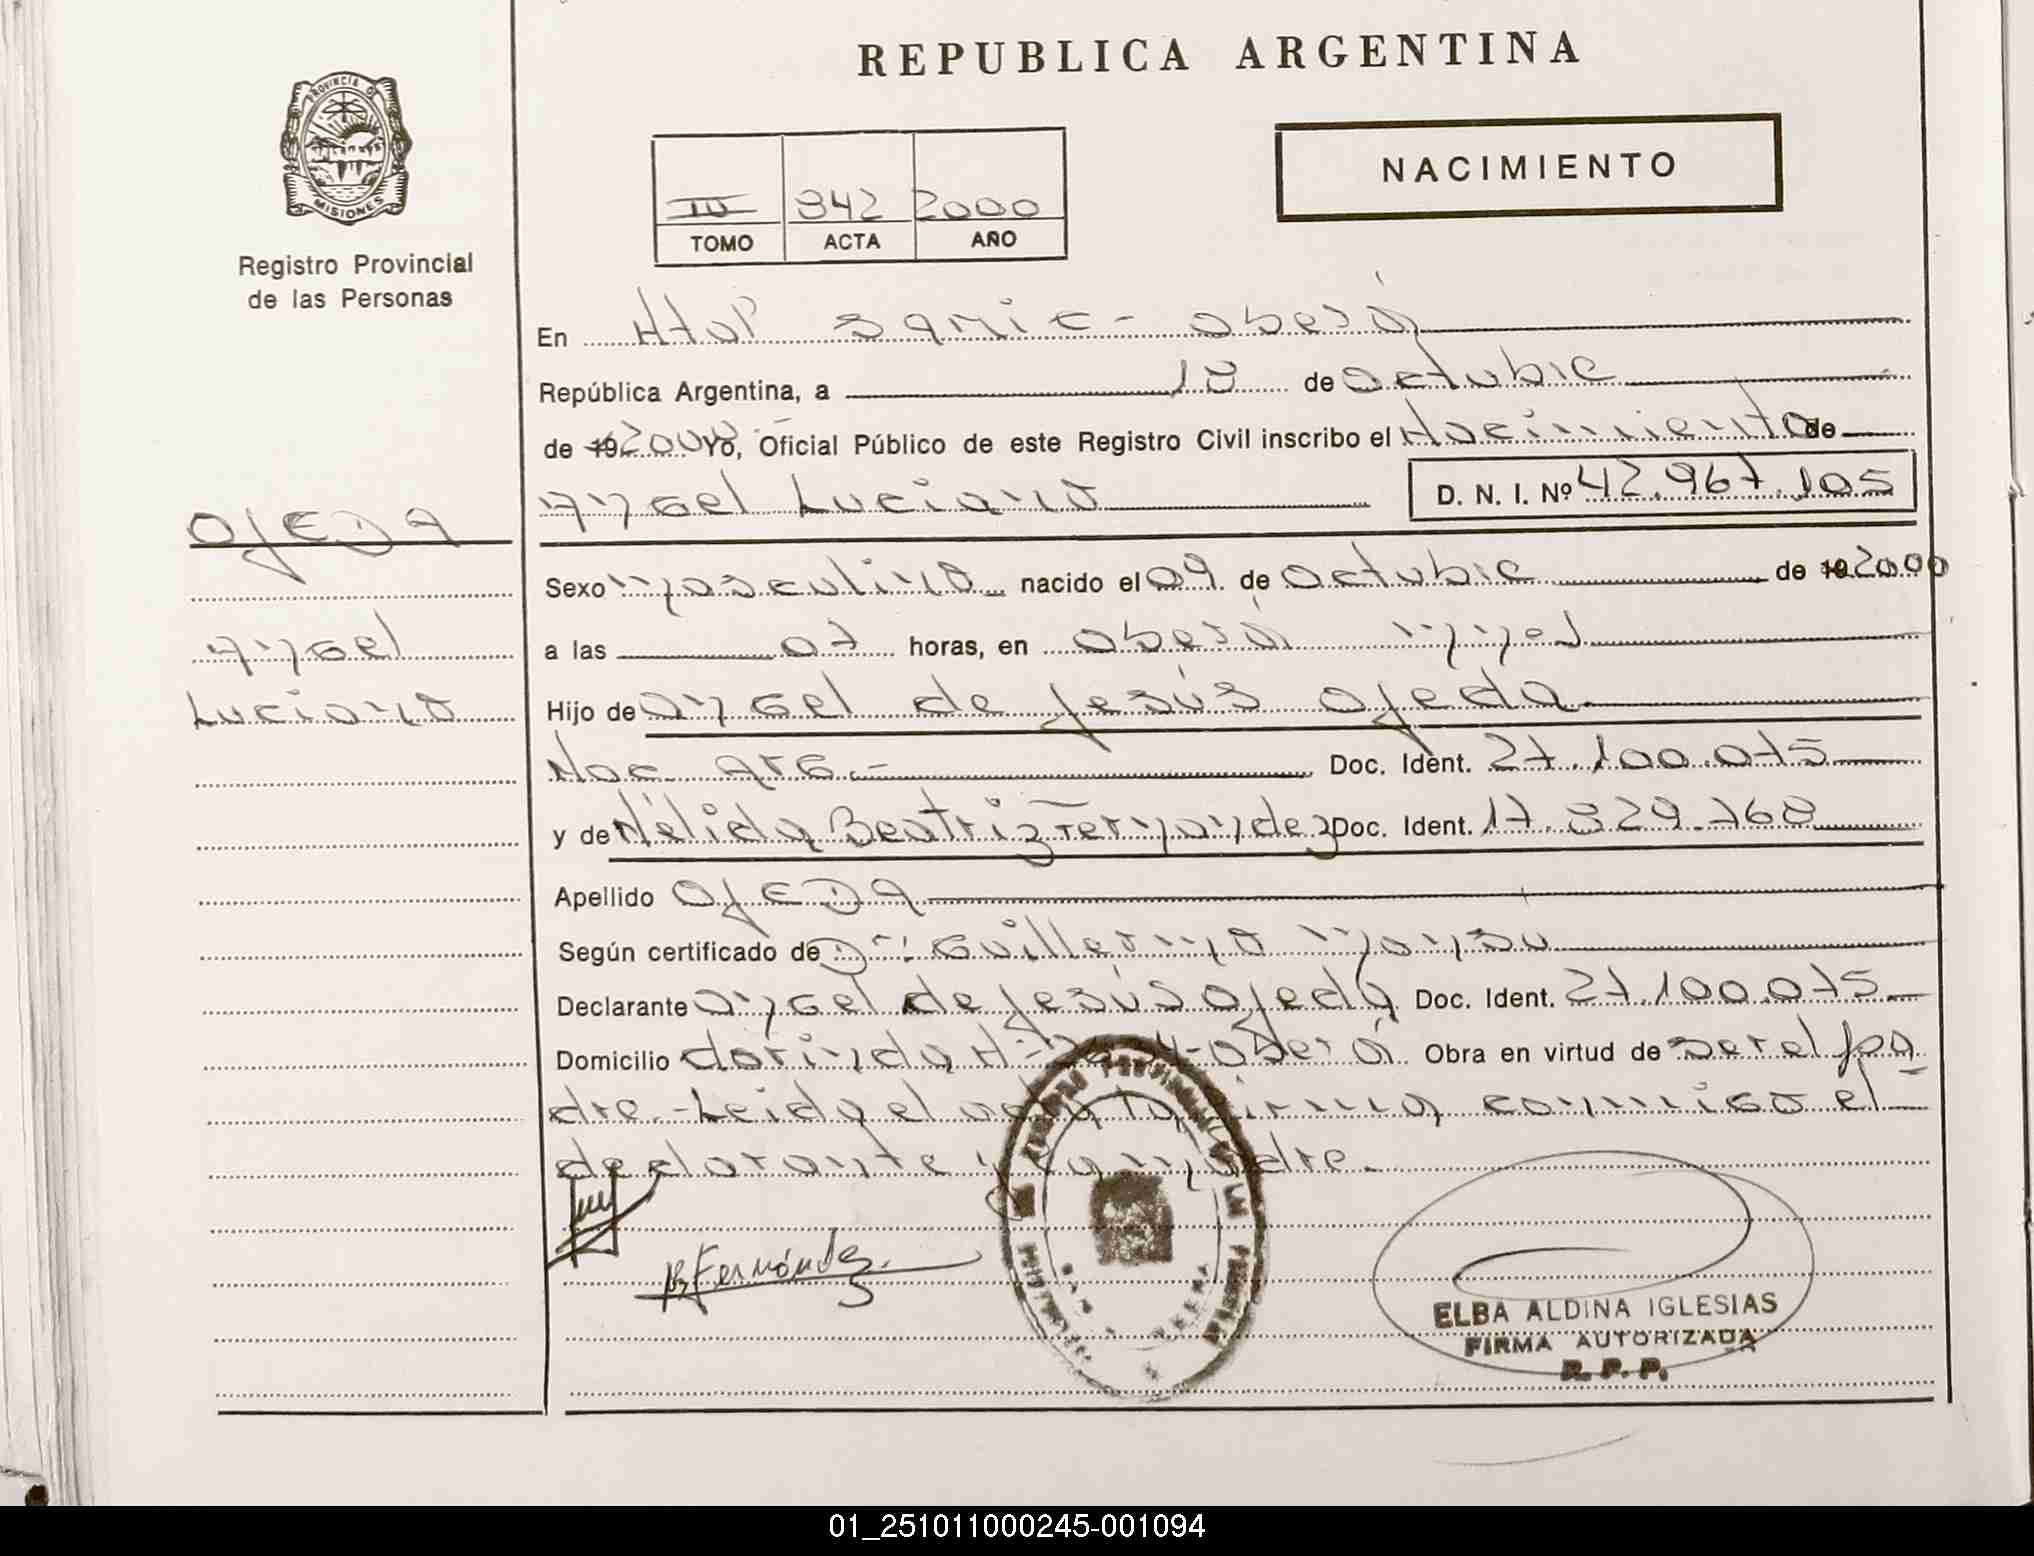 REPUBLICA ARGENTINA
PROVINCIA DE
MISIONES
Registro Provincial
de las Personas
NACIMIENTO
III 842 2000
TOMO ACTA AÑO
En Htal Samic - Oberá
República Argentina, a 18 de Octubre
de 19 2000 Yo, Oficial Público de este Registro Civil inscribo el Nacimiento de
Angel Luciano D. N. I. Nº 42.967.105
OJEDA
Angel
Luciano
Sexo masculino nacido el 09 de Octubre de 19 2000
a las 07 horas, en Oberá Mnes
Hijo de Angel de Jesús Ojeda
Nac. Arg.- Doc. Ident. 27.100.075
y de Nélida Beatriz Fernandez Doc. Ident. 17.829.768
Apellido OJEDA
Según certificado de Dr: Guillermo
Declarante Angel de Jesús Ojeda Doc. Ident. 27.100.075
Domicilio Oberá Obra en virtud de ser el pa
dre.-Leida el acta la firma conmigo el
declarante y la madre.
Fernández
ELBA ALDINA IGLESIAS
FIRMA AUTORIZADA
R. P. P.
01_251011000245-001094